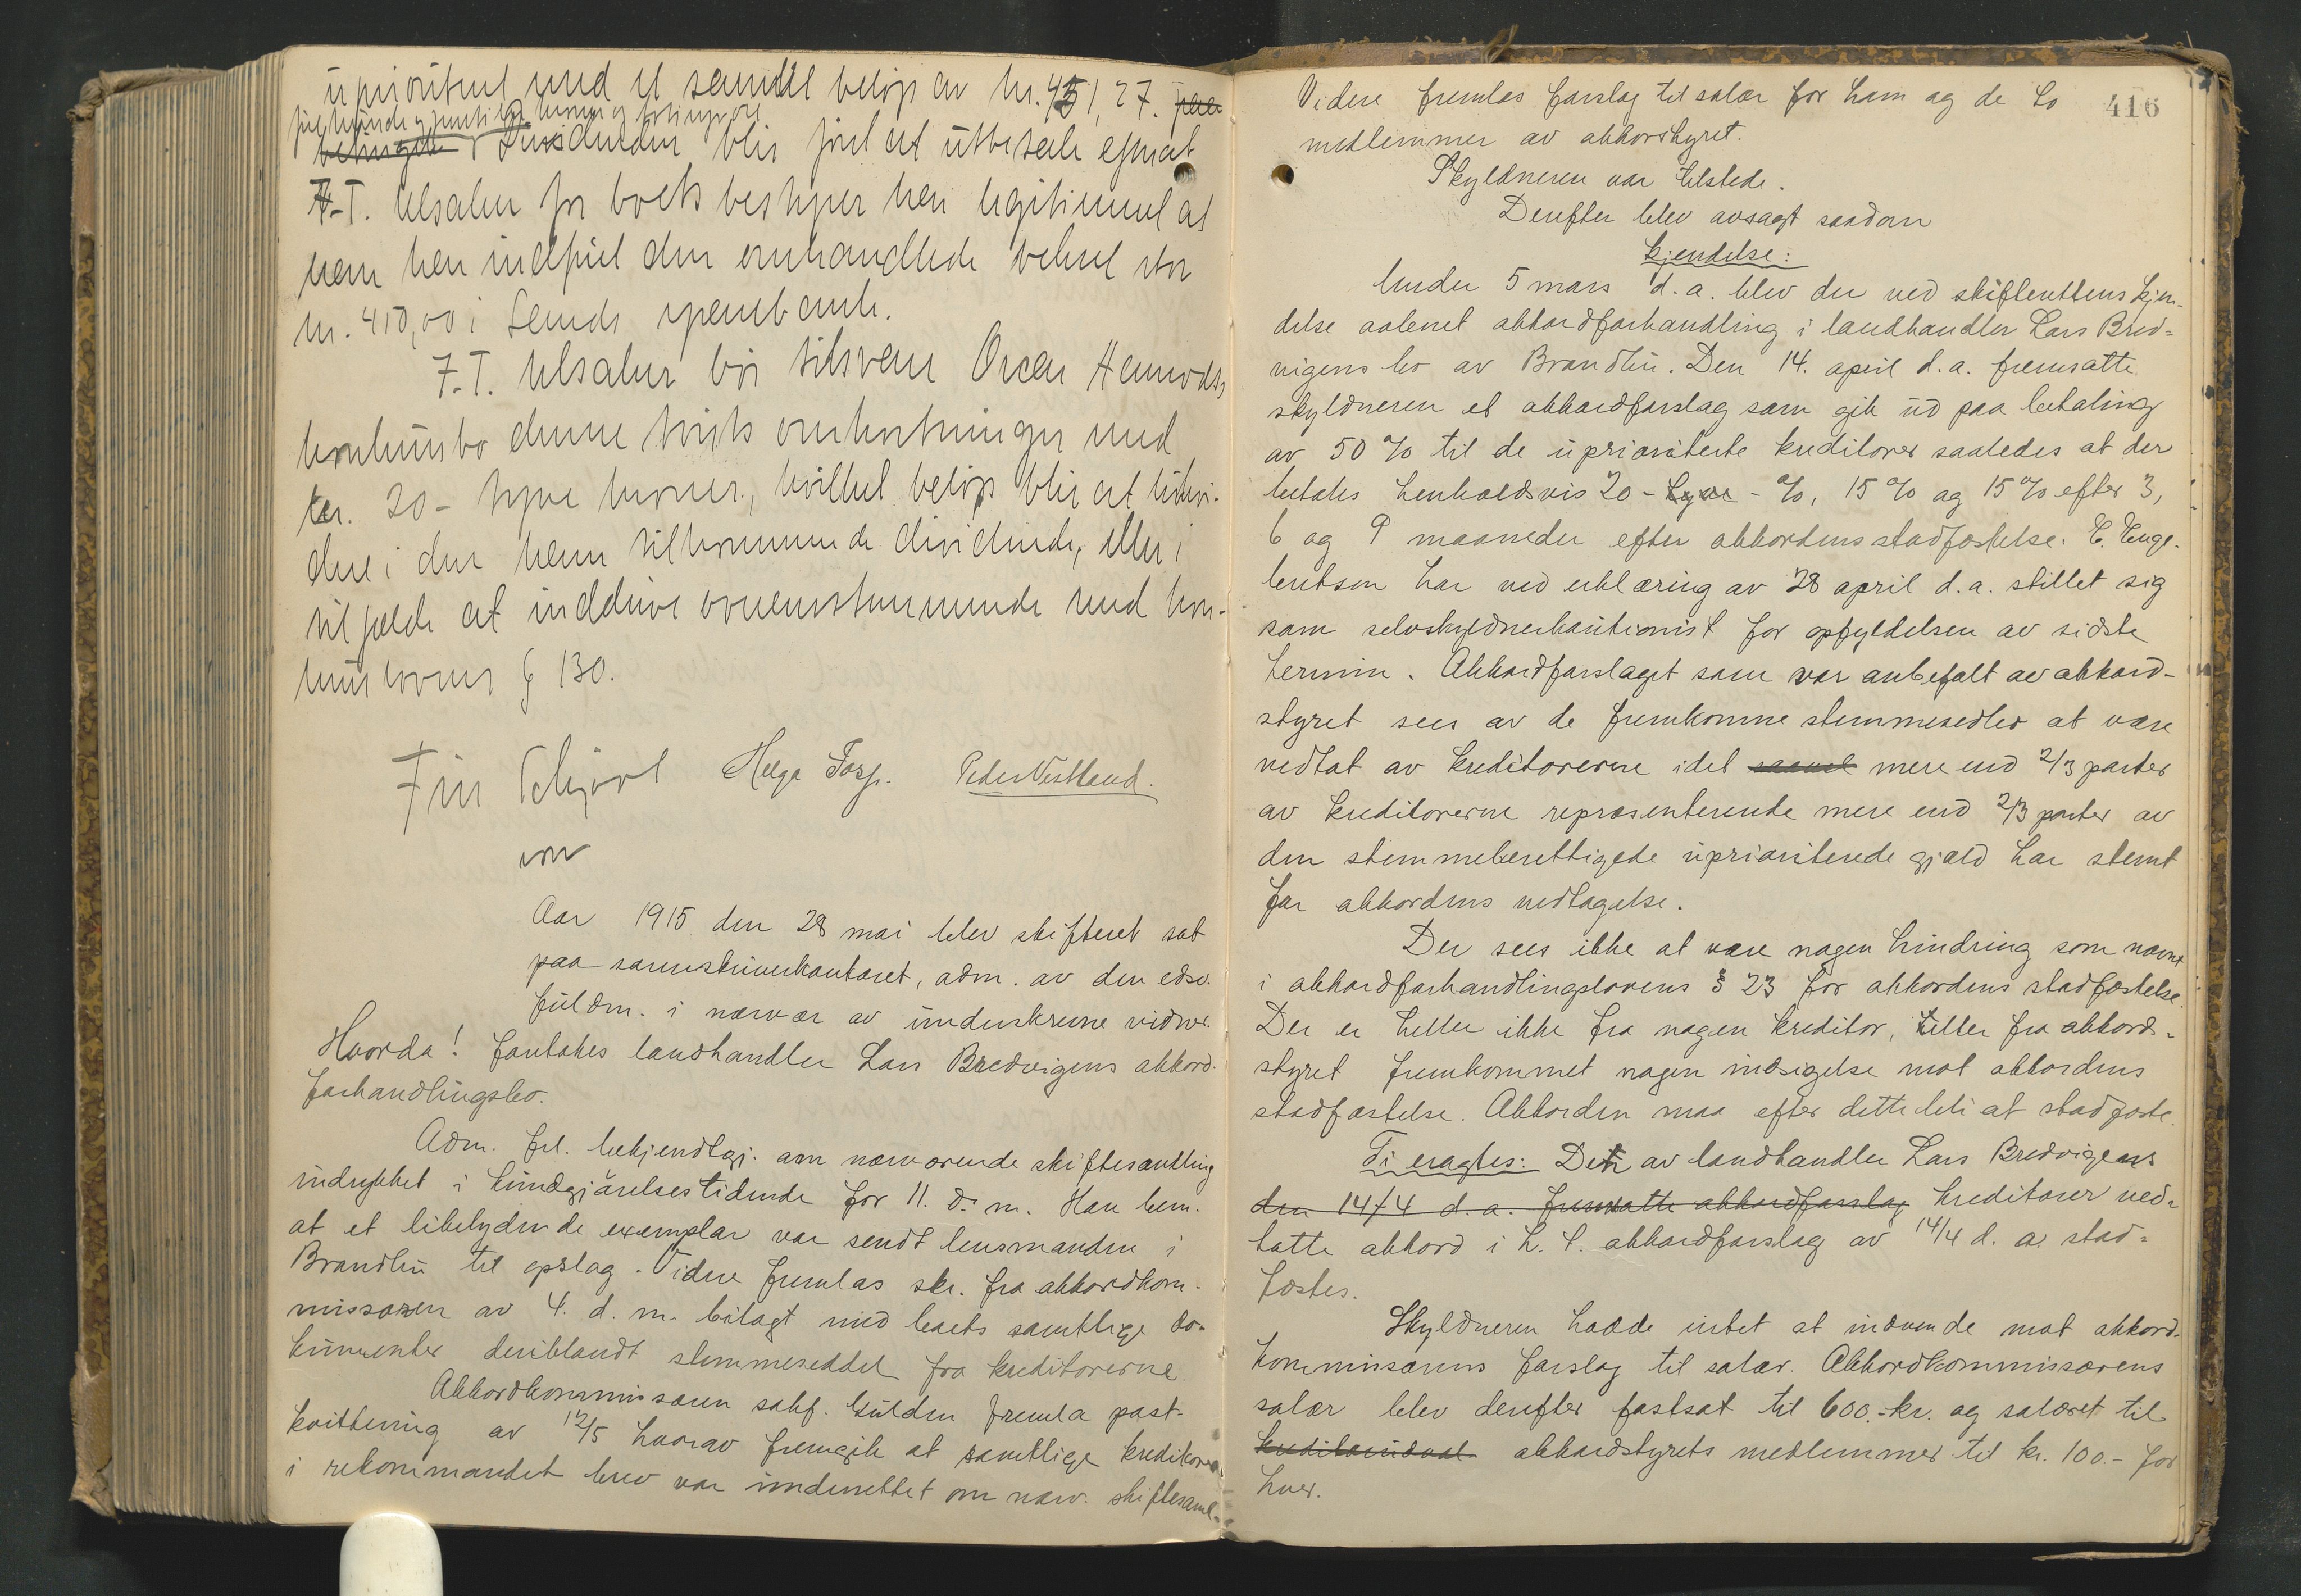 uprioritert med et samlet beløp av kr. 451,27.
Dividenden blir først at utbetale efterat
F.T. Ulsaker for boets bestyrer har legitimert at
han har indfriet den omhandlede veksel stor
kr. 410,00 i Lands sparebank.
F.T. Ulsaker bør tilsvare Oscar Hennods,
konkursbo denne tvists omkostninger med
kr. 20 - tyve kroner, hvilket beløp blir at likvi-
dere i den ham tilkommende dividende, eller i
tilfælde at inddrive overensstemmende med kon-
kurslovens § 130.
Fin Schjøll Helge Torp. Peder Vestland.
Aar 1915 den 28 mai blev skifteret sat
paa sorenskriverkontoret, adm. av den edsv.
fuldm. i nærvær av underskrevne vidner.
Hvorda! Foretokes landhandler Lars Bredvigens akkord-
forhandlingsbo.
Adm. frl. bekjendtgj. om nærværende skiftesamling
indrykket i kundgjørelsestidende for 11. d. m. Han bem.
at et likelydende exemplar var sendt lensmanden i
Brandbu til opslag. Videre fremlas skr. fra akkordkom-
missæren av 4. d. m. bilagt med boets samtlige do-
kumenter deriblandt stemmeseddel fra kreditorerne.
Akkordkommissæren sakf. Gulden fremla post-
kvittering av 12/5 hvorav fremgik at samtlige kreditorer
i rekommandert brev var underrettet om nærv. skiftesaml.
416
Videre fremlas forslag til salær for ham og de to
medlemmer av akkorstyret.
Skyldneren var tilstede.
Derefter blev avsagt saadan
Kjendelse:
Under 5 mars d.a. blev der ved skifterettens kjen-
delse aabnet akkordforhandling i landhandler Lars Bred-
vigens bo av Brandbu. Den 14. april d.a. fremsatte
skyldneren et akkordforslag som gik ud paa betaling
av 50 % til de uprioriterte kreditorer saaledes at der
betales henholdsvis 20 - tyve - %, 15 % og 15 % efter 3,
6 og 9 maaneder efter akkordens stadfæstelse. E. Enge-
bretsen har ved erklæring av 28 april d.a. stillet sig
som selvskyldnerkautionist for opfyldelsen av sidste
termin. Akkordforslaget som var anbefalt av akkord-
styret sees av de fremkomne stemmesedler at være
vedtat av kreditorerne idet saavel mere end 2/3 parter
av kreditorerne repræsenterende mere end 2/3 parter av
den stemmeberettigede uprioriterede gjæld har stemt
for akkordens vedtagelse.
Der sees ikke at være nogen hindring som nævnt
i akkordforhandlingslovens § 23 for akkordens stadfæstelse.
Der er heller ikke fra nogen kreditor, heller fra akkord-
styret fremkommet nogen indsigelse mot akkordens
stadfæstelse. Akkorden maa efter dette bli at stadfæste.
Ti eragtes: Den av landhandler Lars Bredvigens
den 14/4 d.a. fremsatte akkordforslag kreditorer ved-
tatte akkord i h. t. akkordforslag av 14/4 d. a. stad-
fæstes.
Skyldneren hadde intet at indvende mot akkord-
kommissærens forslag til salær. Akkordkommissærens
salær blev derefter fastsat til 600.- kr. og salæret til
kreditorudval akkordstyrets medlemmer til kr. 100.- for
hver.